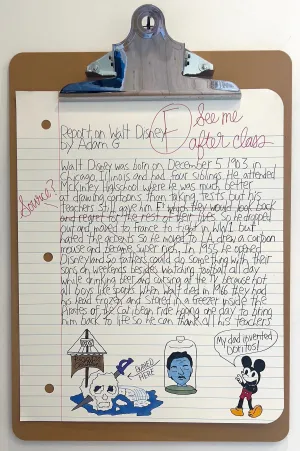 F
See me
after class
Report on Walt Disney
by Adam G
Source?
Walt Disney was born on December 5 1903 in
Chicago, Illinois and had four siblings. He attended
McKinley Highschool where he was much better
at drawing cartoons than taking tests but his
teachers still gave him F's which they would look back
and regret for the rest of their lives. So he dropped
out and moved to France to fight in WWI but
hated the accents so he moved to LA, drew a cartoon
mouse and became super rich. In 1955 he opened
Disneyland so fathers could do something with their
sons on weekends besides watching football all day
while drinking beer and cursing at the TV because not
all boys like sports. When Walt died in 1966 they had
his head frozen and stored in a freezer inside the
Pirates of the Caribbean ride hoping one day to bring
him back to life so he can thank all his teachers
BURIED
HERE
My dad invented
Doritos!